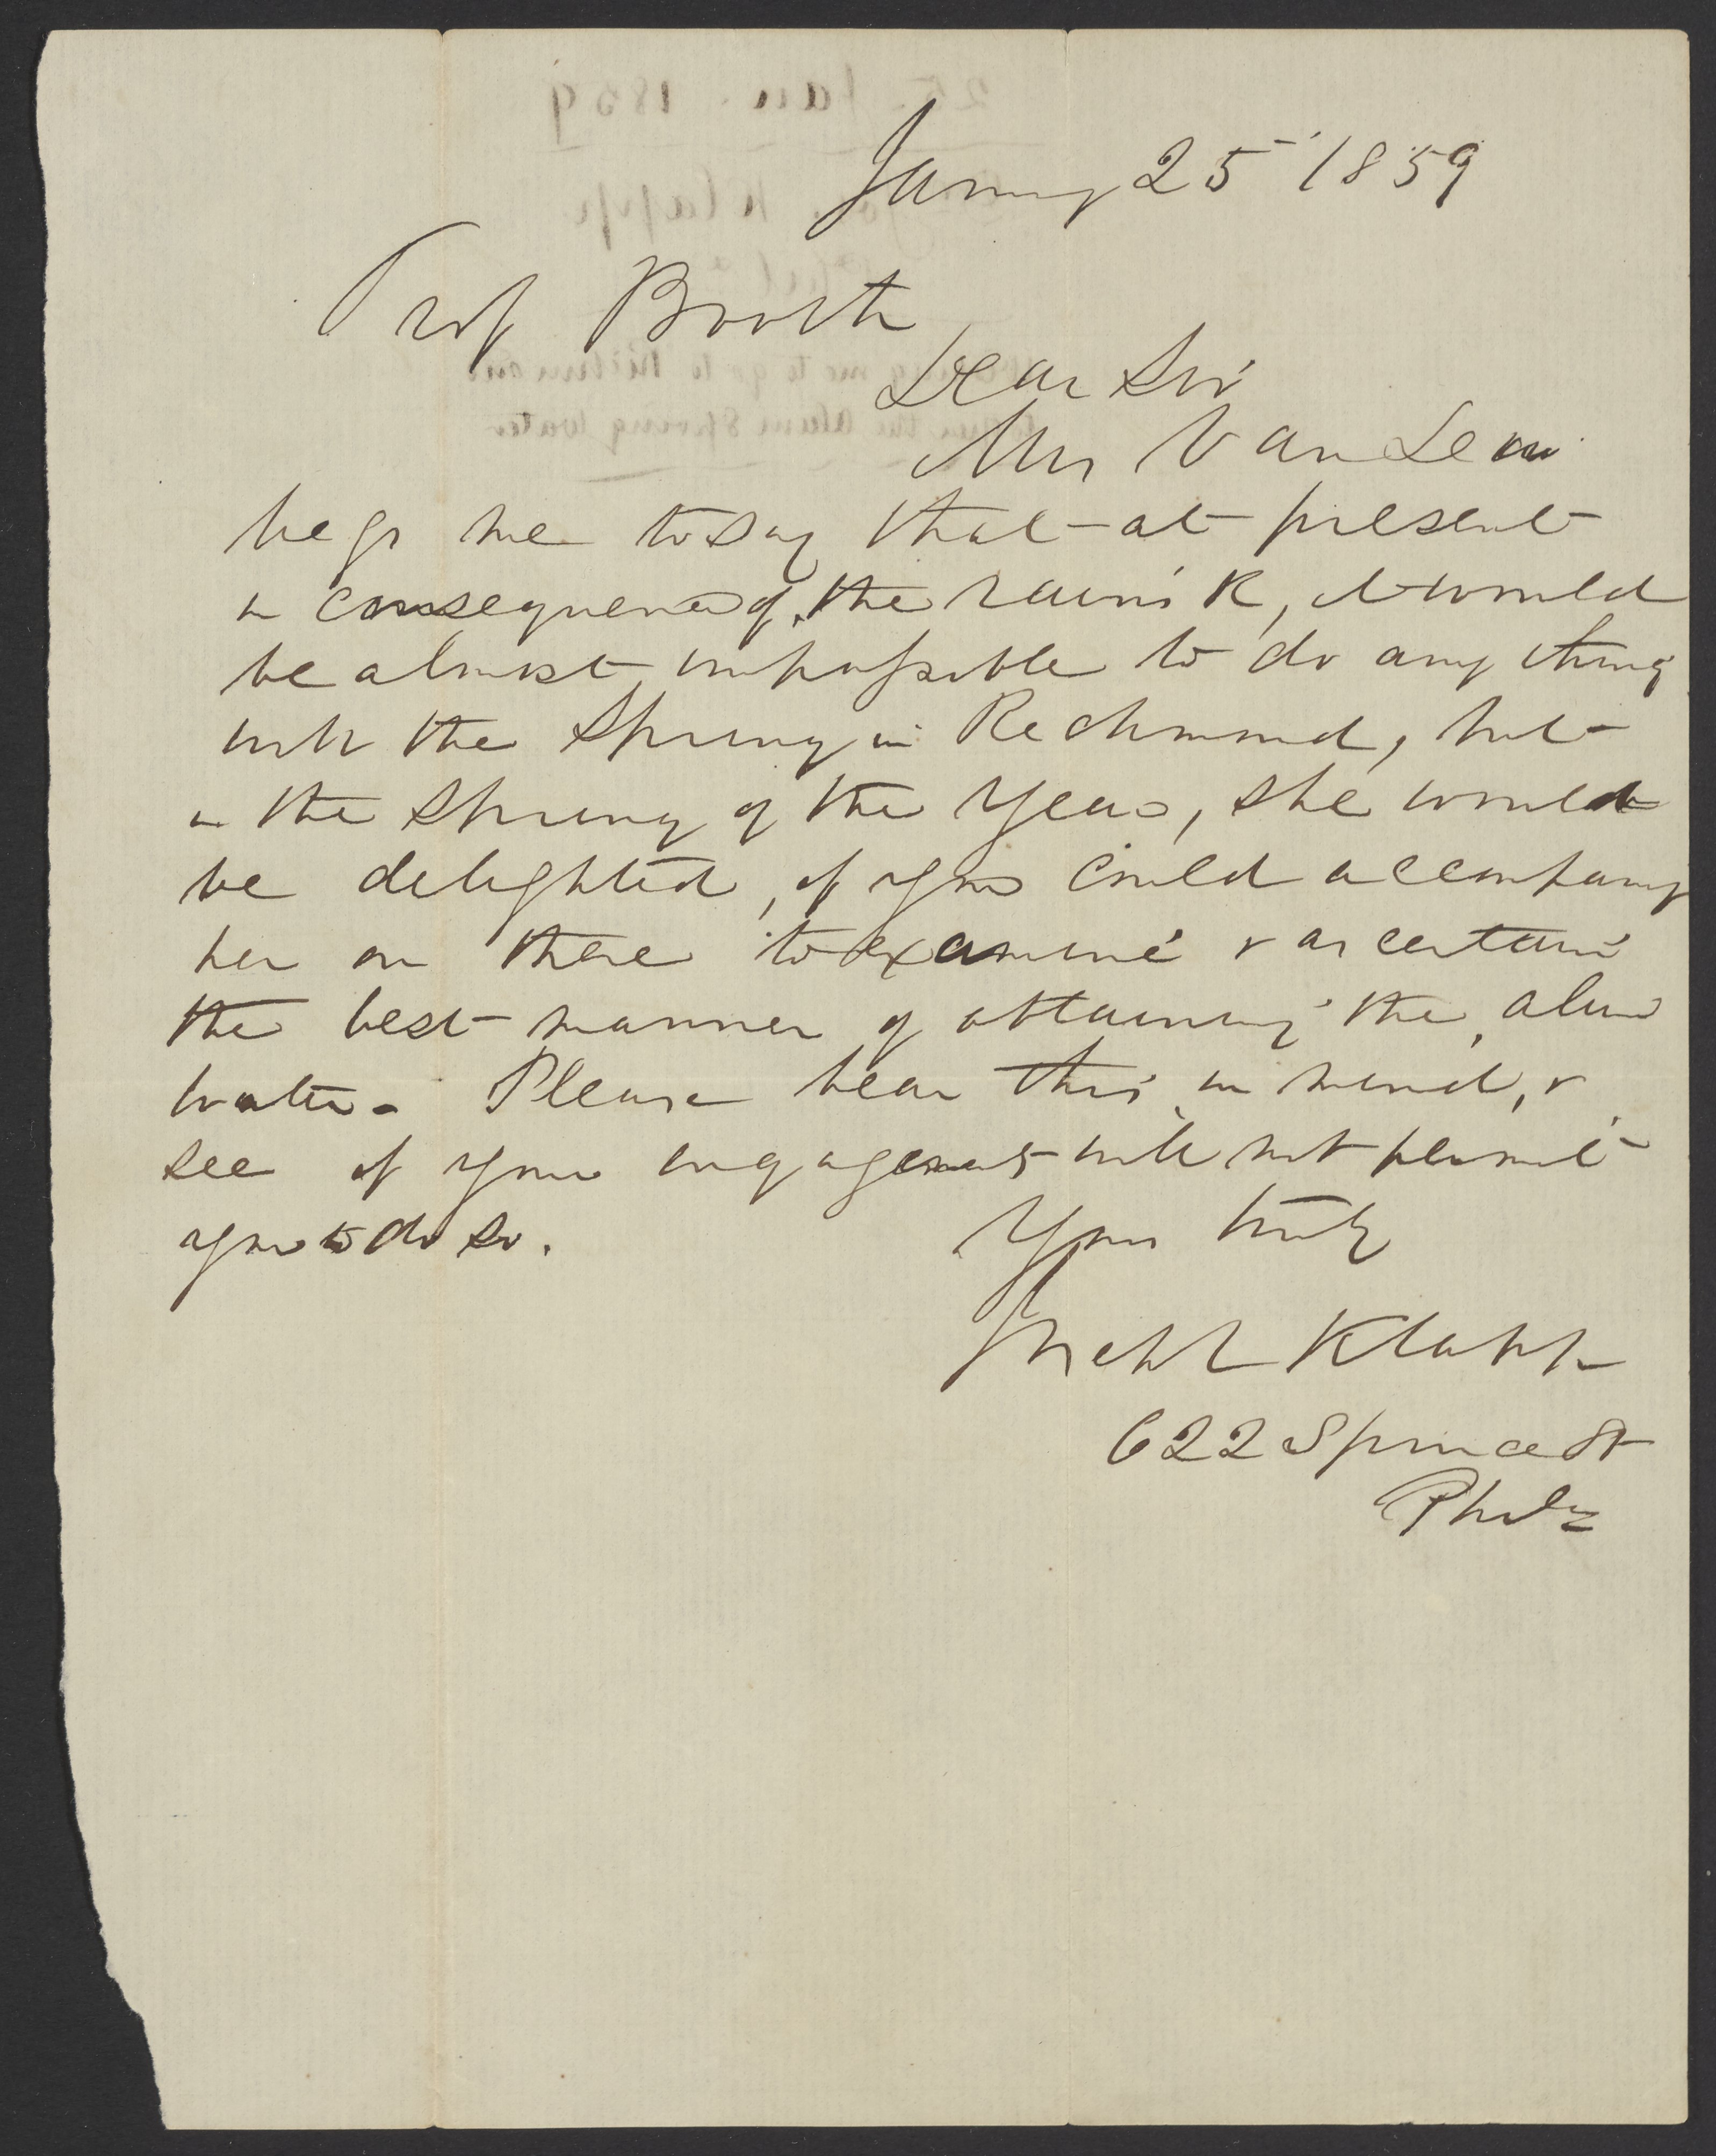 January 25 1859
Prof Booth
Dear Sir
Mrs Van Lew
begs me to say that at present
in consequence of the rains &c, it would
be almost impossible to do any thing
with the Spring in Richmond, but
in the Spring of the Year, she would
be delighted, if you could accompany
her on there to examine & ascertain
the best manner of obtaining the alum
water. Please bear this in mind, &
see if your engagements will not permit
you to do so.
Yours truly
Klapp
622 Spruce St
Phila
25 Jan. 1859
Klapp
Phila
me to go to Richmond
the Alum Spring Water